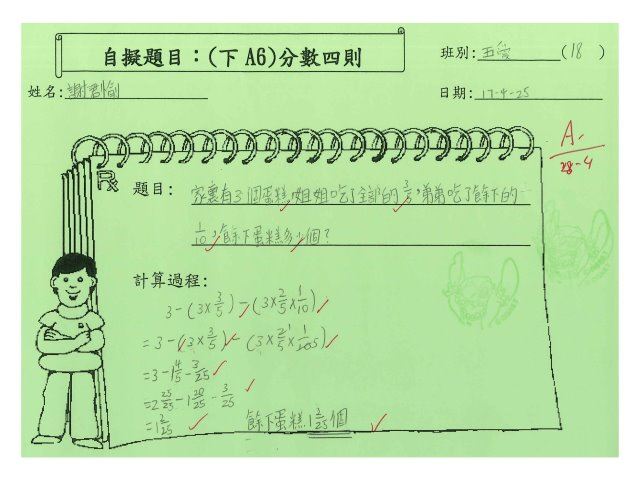 自擬題目：(下 A6)分數四則
班別: 五愛 (18 )
姓名: 謝
日期: 17-4-25
A-
28-4
題目: 家裏有3個蛋糕,姐姐吃了全部的3/5,弟弟吃了餘下的
1/10,餘下蛋糕多少個?
計算過程:
3-(3×3/5)-(3×2/5×1/10)
=3-(3×3/5)-(3×2/5×1/10 5)
=3-1 4/5-3/25
=2 25/25-1 20/25-3/25
=1 2/25 餘下蛋糕1 2/25個